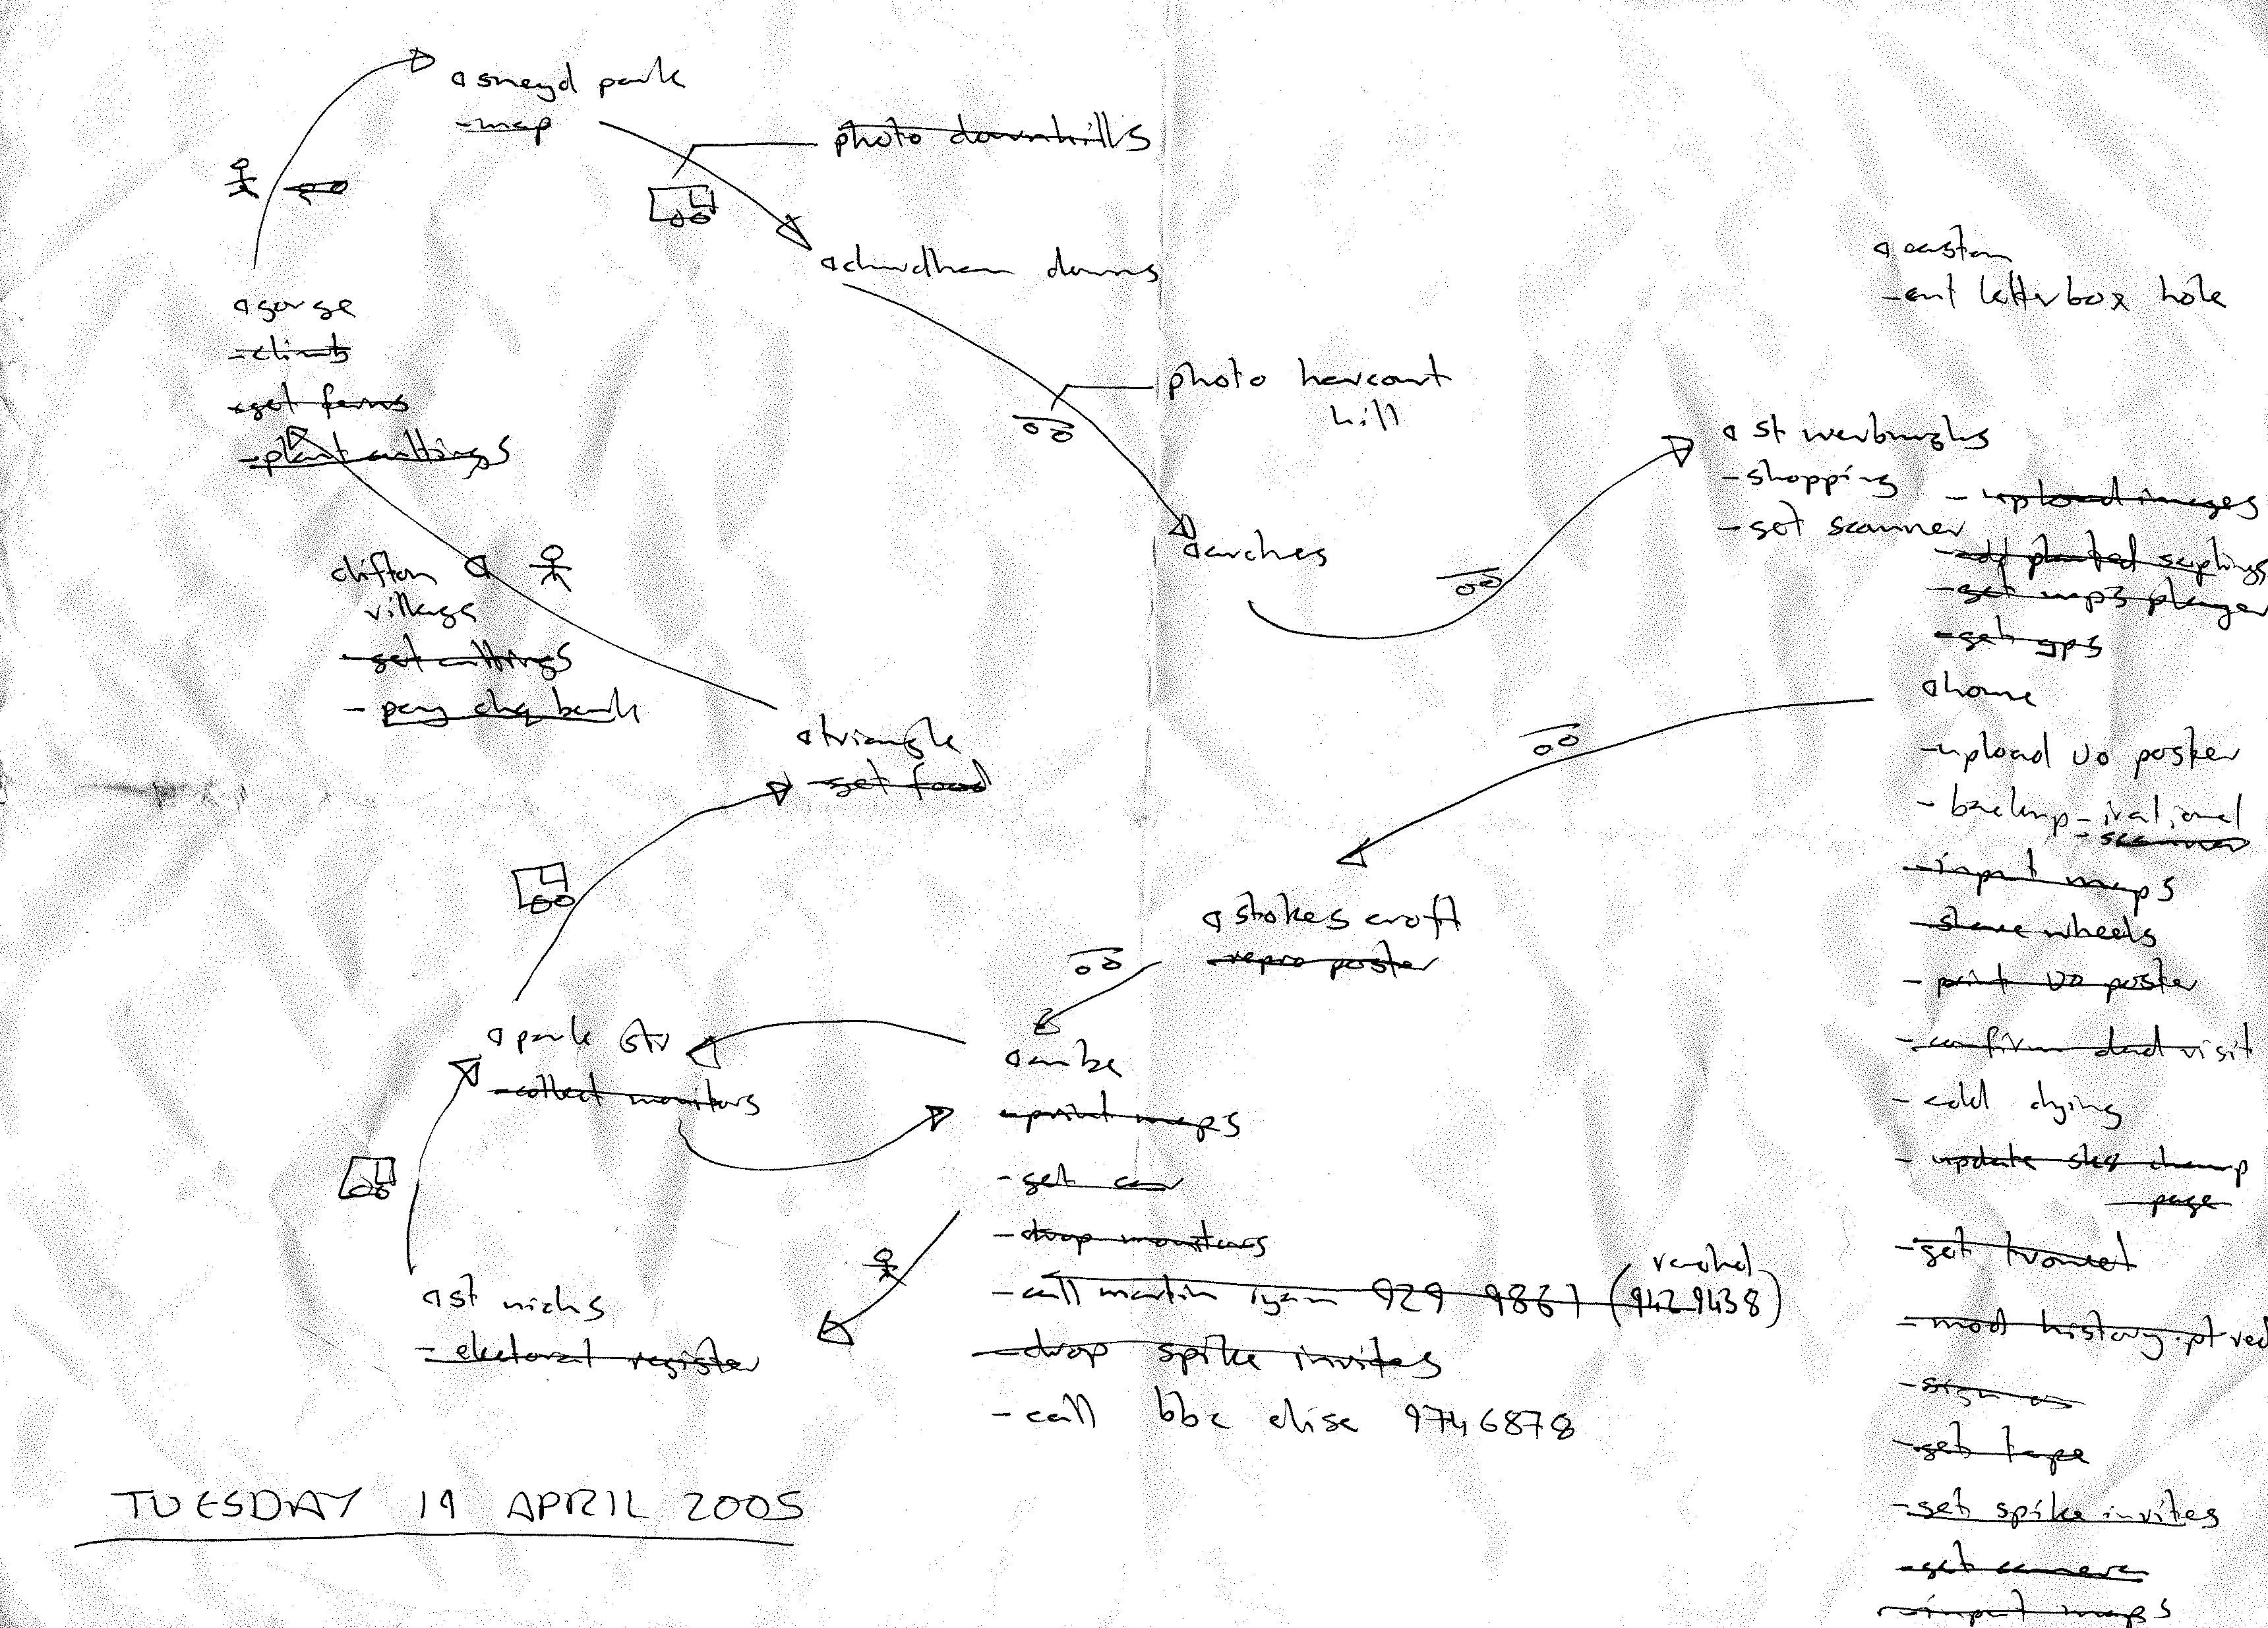 sneyd park
-map
photo downhills
durdham downs
gorge
-climb
-get ferns
-plant cuttings
photo harcourt
hill
easton
-cut letterbox hole
st werburghs
-shopping
-get scanner
- upload images
-add planted saplings
-get mp3 player
-get gps
arches
clifton
village
-get cuttings
- pay chq bank
triangle
-get food
home
-upload vo poster
- backup - irational
- scanner
-input maps
wheels
- print vo poster
-confirm dad visit
- add dying
- update sk8 champ
page
-get
-mod history.pt red
-sign on
-get tape
-get spike invites
-get camera
-input maps
stokes croft
-repro poster
park str
-collect monitors
cube
-print maps
-get car
-drop monitors
rachel
-call martin ryan 929 9867 (942 9438)
-drop spike invites
-call bbc elise 9746878
st nichs
- electoral register
TUESDAY 19 APRIL 2005